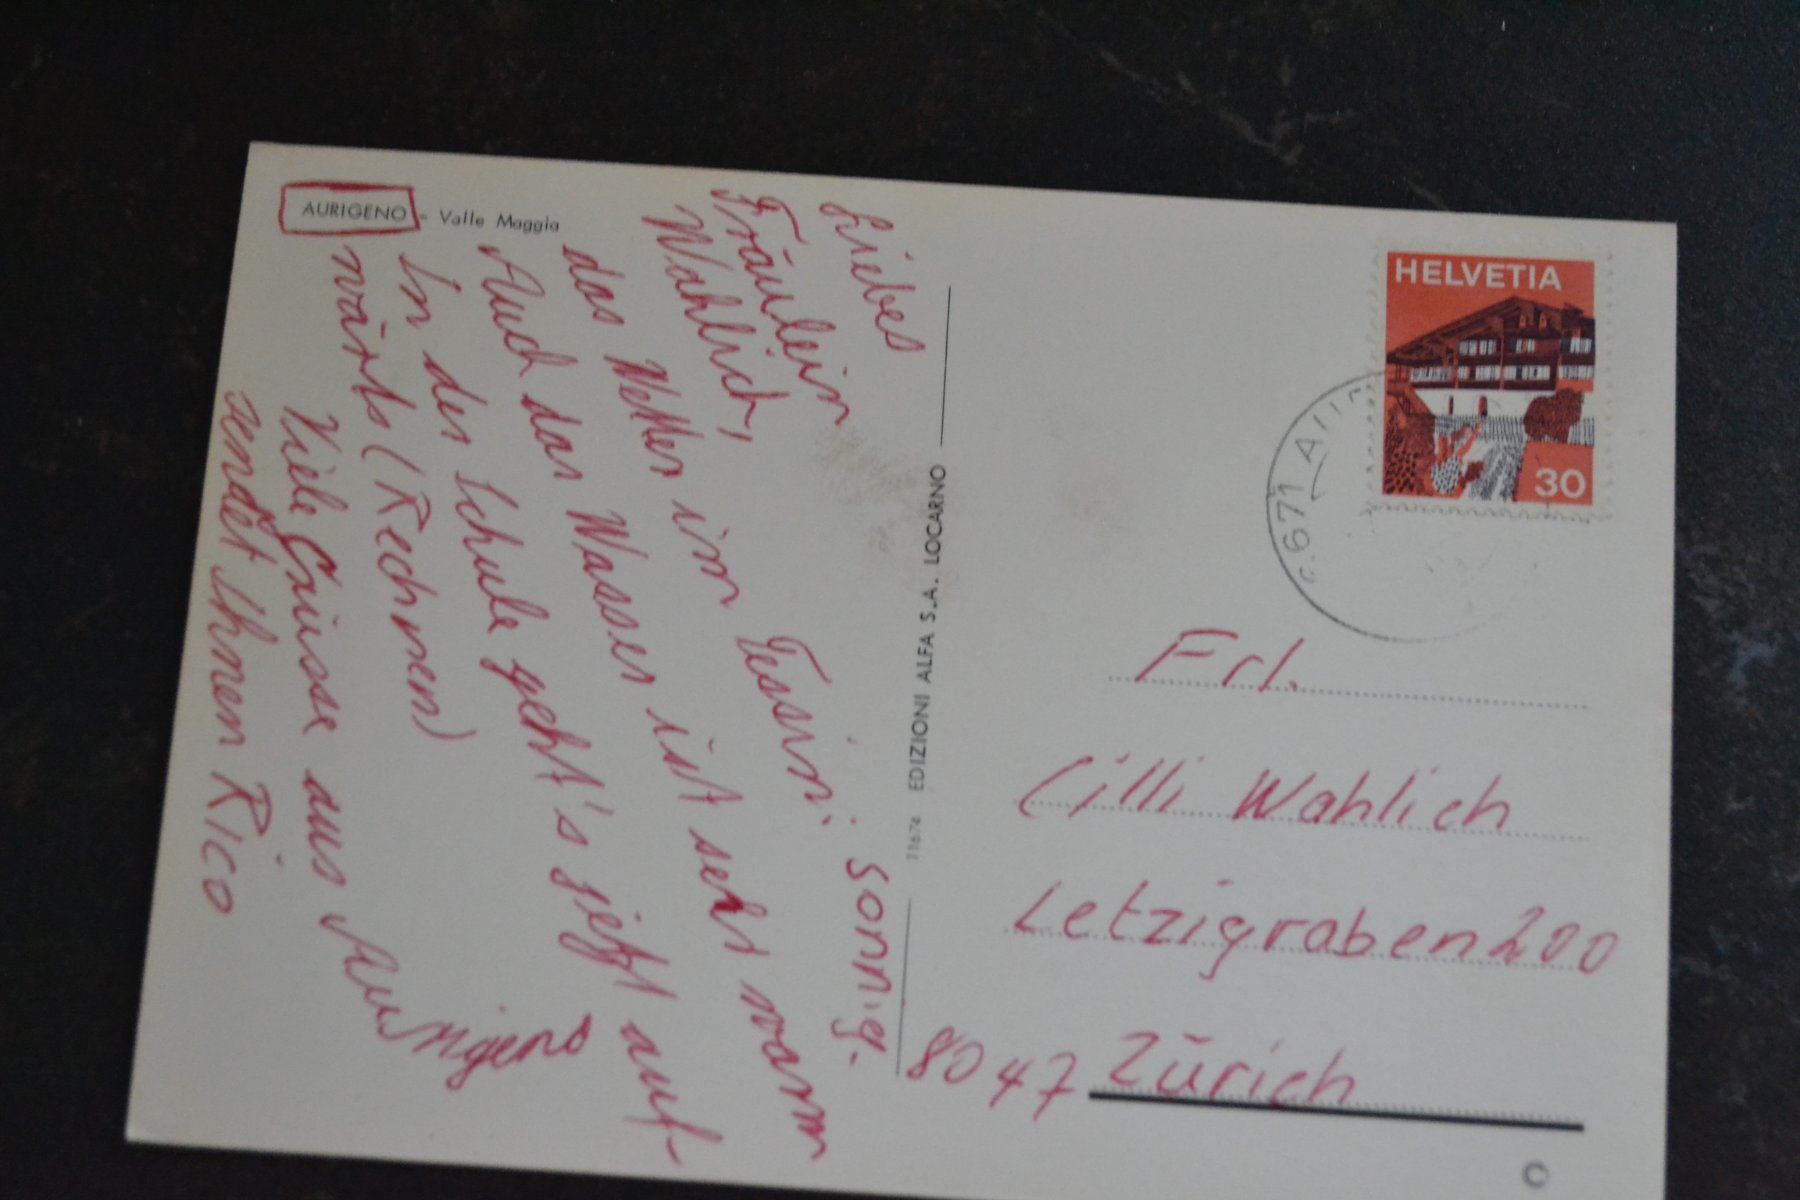 AURIGENO - Valle Maggia
Liebes
Fräulein
Wahlich,
das Wetter im Tessin: sonnig.
Auch das Wasser ist sehr warm
In der Schule geht's jetzt auf-
wärts (Rechnen)
Viele Grüsse aus Aurigeno
sendet Ihnen Rico
11674 EDIZIONI ALFA S.A. LOCARNO
HELVETIA
30
6671
Frl.
Cilli Wahlich
Letzigraben 200
8047 Zürich